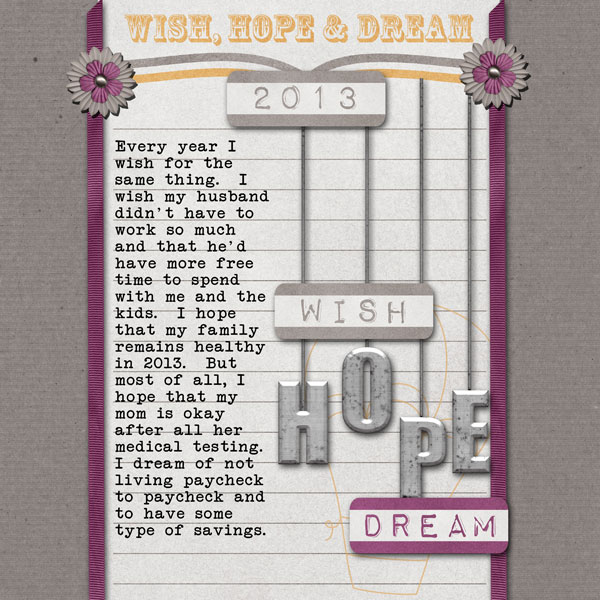 WISH, HOPE & DREAM
2013
Every year I
wish for the
same thing.  I
wish my husband
didn't have to
work so much
and that he'd
have more free
time to spend
with me and the
kids.  I hope
that my family
remains healthy
in 2013.  But
most of all, I
hope that my
mom is okay
after all her
medical testing.
I dream of not
living paycheck
to paycheck and
to have some
type of savings.
WISH
HOPE
DREAM